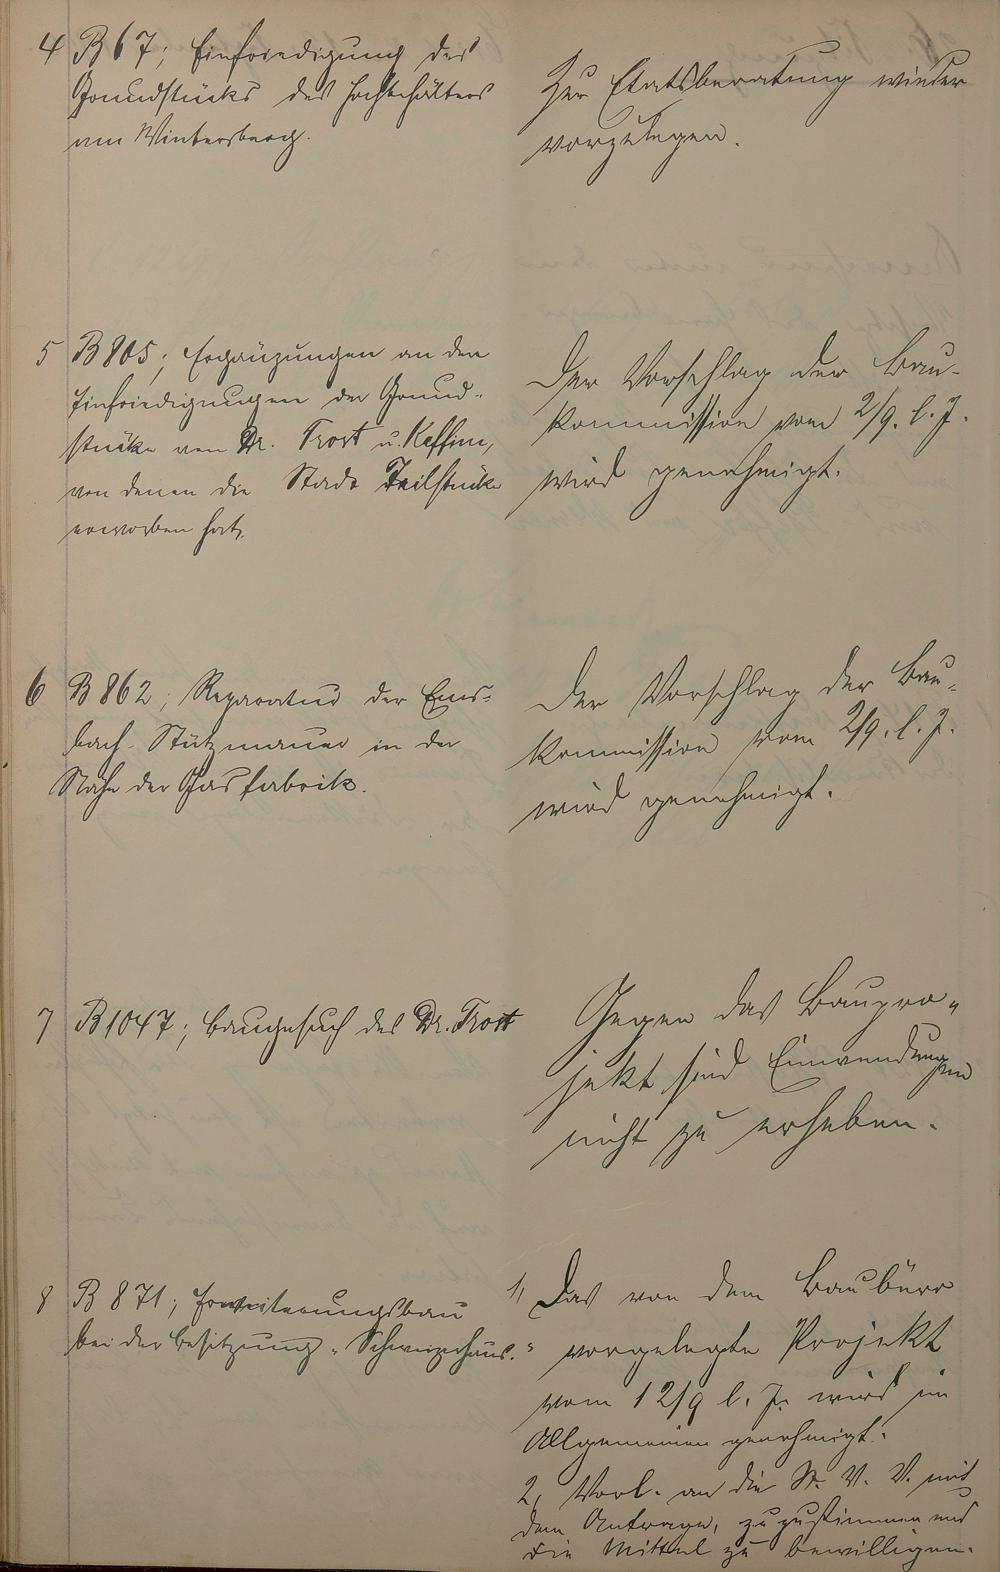 4 B 67; Einfriedigung des
Grundstücks des Hochbehälters
am Wintersberg.
Zur Etatsberatung wieder
vorzulegen.
5 B 805; Ergänzungen an den
Einfriedigungen der Grund-
stücke von Dr. Trost u.
von denen die Stadt Teilstücke
erworben hat.
Der Vorschlag der Bau-
kommission vom 2/9. l. J.
wird genehmigt.
6 B 862; Reparatur der Ems-
bach-Stützmauer in der
Nähe der Gasfabrik.
Der Vorschlag der Bau-
kommission vom 2/9. l. J.
wird genehmigt.
7 B 1047; Baugesuch des Dr. Trost
Gegen das Baupro-
jekt sind Einwendungen
nicht zu erheben.
8 B 871; Erweiterungsbau
bei der Besitzung „Schweizerhaus."
1, Das von dem Baubüro
vorgelegte Projekt
vom 12/9 l. J. wird im
Allgemeinen genehmigt.
2, Vorl. an die St. V. V. mit
dem Antrage, zuzustimmen und
die Mittel zu bewilligen.